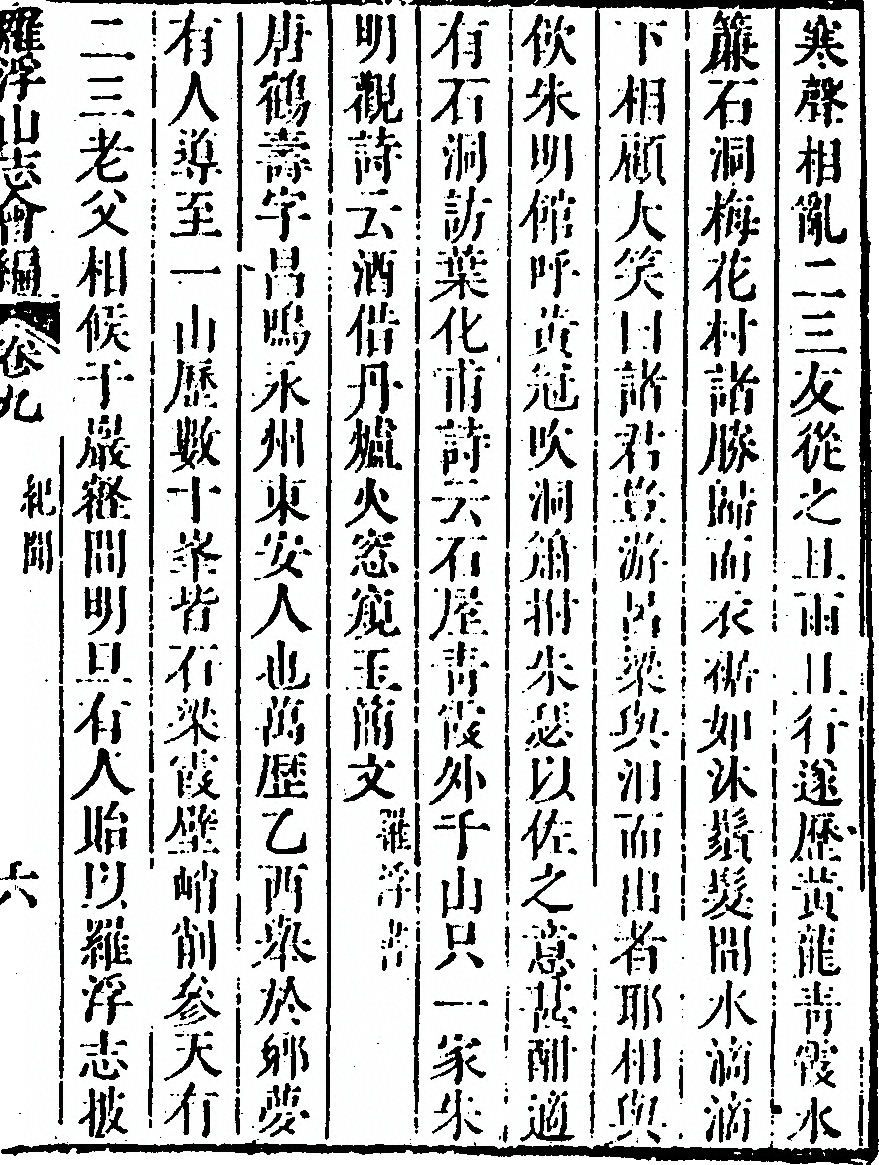 寒聲相亂二三友從之且雨且行遂歷黃龍青霞水
簾石洞梅花村諸勝歸而衣裾如沐鬚髮間水滴滴
下相顧大笑曰諸君豈游呂梁與汩而出者耶相與
飲朱明館呼黃冠吹洞簫拊朱瑟以佐之意甚酣適
有石洞訪葉化甫詩云石屋青霞外千山只一家朱
明觀詩云酒借丹爐火窓窺玉簡文羅浮書
唐鶴壽字昌鳴永州東安人也萬歷乙酉舉於鄉夢
有人導至一山歷數十峯皆石梁霞壁峭削參天有
二三老父相候于巖壑間明旦有人貽以羅浮志披
羅浮山志會編 卷九 紀聞 六